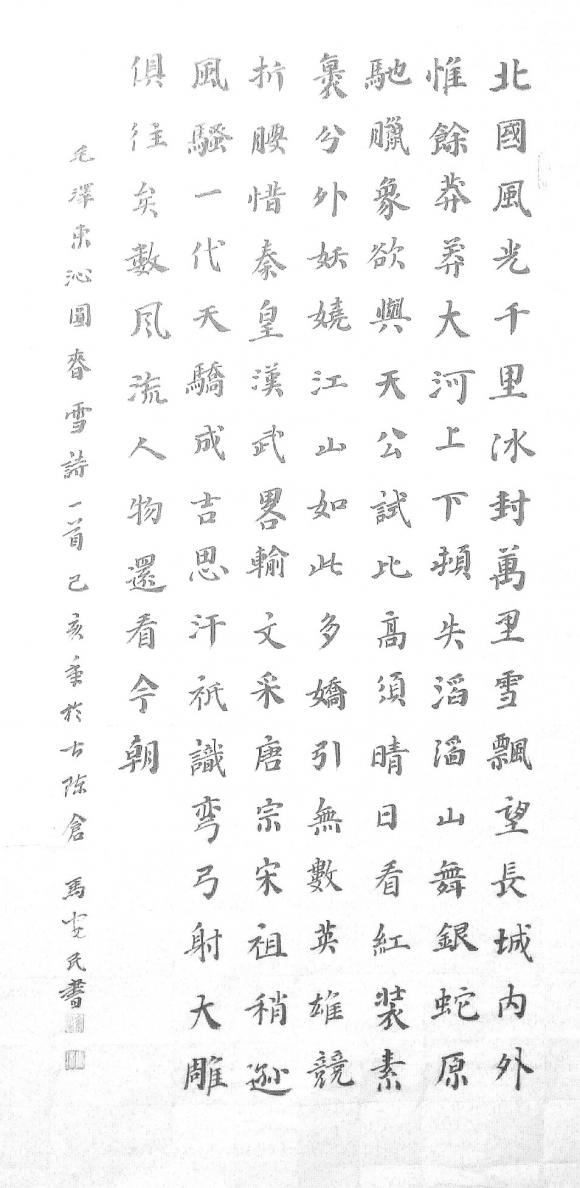 北國風光千里冰封萬里雪飄望長城内外
惟餘莽莽大河上下頓失滔滔山舞銀蛇原
馳臘象欲與天公試比高須晴日看紅裝素
裹分外妖嬈江山如此多嬌引無數英雄競
折腰惜秦皇漢武畧輸文采唐宗宋祖稍遜
風騷一代天驕成吉思汗祇識弯弓射大雕
俱往矣數凨流人物還看今朝
毛澤東沁園春雪詩一首己亥秊於古陳倉 馬民書